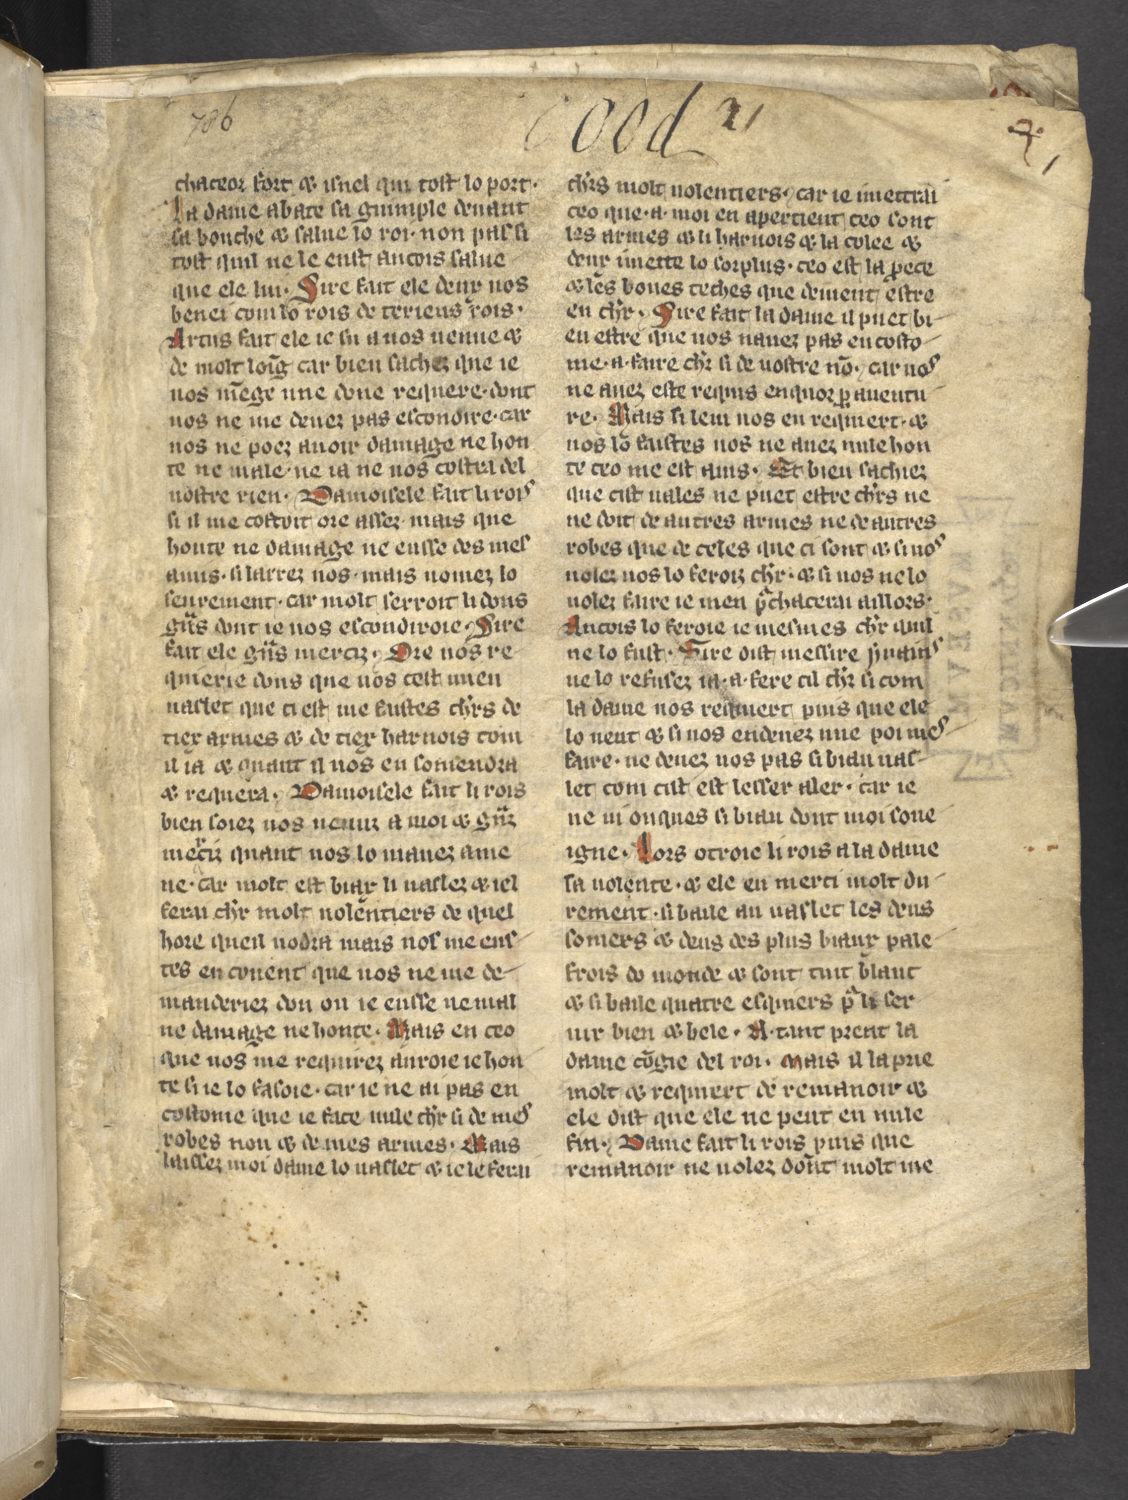 786
ood 21
4
chaceor fort & isnel qui tost lo port·
La dame abate sa guimple deuant
sa bouche & salue lo roi· non pas si
tost quil ne le eust ancois salue
que ele lui· Sire fait ele deux uos
beneı com lo rois de teriens rois·
Artus fait ele ie su a uos uenue &
de molt loīg car bien sachez que ie
uos ueıg̃e une done requere· dont
uos ne me deuez pas escondire· car
uos ne poez auoir damage ne hon
te ne male· ne ia ne uos costera del
uostre rien· Damoisele fait li rois
si il me costoit ore assez· mais que
honte ne damage ne eusse des mes
amis· si larrez uos· mais nomez lo
seurement· car molt serroit li dons
gñs dont ie uos escondiroie· Sire
fait ele gñs merciz· Ore uos re
quierie dons que uos cest mien
uaslet que ci est me fustes ch'rs de
tiex armes & de tiex harnois com
il ia & quant il uos en somendra
& requera· Damoisele fait li rois
bien soiez uos uenuz a moi & gñz
merciz quant uos lo mauez ame
ne· car molt est biax li uaslez & iel
ferai ch'r molt uolentiers de quel
hore queil uodra mais uos me eus
tes en couent que uos ne me de
manderiez don ou ie eusse ne mal
ne damage ne honte· Mais en ceo
que uos me requirez auroie ie hon
te si ie lo fasoie· car ie ne ai pas en
costome que ie face nule ch'r si de mes
robes non & de mes armes· Mais
laissez moi dame lo uaslet & ie le ferai
ch'rs molt uolentiers· car ie i mettrai
ceo que·a·moi en apertient ceo sont
les armes & li harnois & la colee &
deux i mette lo sorplus· ceo est la p̃ece
& les bones teches que deiuent estre
en ch'r· Sire fait la dame il puet bi
en estre que uos nauez pas en costo
me·a·faire ch'r si de uostre nō· car uos
ne auez este requis enquor p auentu
re· Mais si leui uos en requiert· &
uos lō fustes uos ne auez nule hon
te ceo me est auis· Et bien sachiez
que cist uales ne puet estre ch'rs ne
ne doit de autres armes ne de autres
robes que de celes que ci sont & si uos
uolez uos lo feroiz ch'r· & si uos ne lo
uolez faire ie men p̃chacerai aillors·
Ancois lo feroie ie meismes ch'r quil
ne lo fust· Sire dist messire yuains
ne lo refusez ia·a·fere cil ch'r si com
la dame uos requiert puis que ele
lo ueut & si uos en deuez une poi mes
faire· ne deuez uos pas si biau uas
let com cist est lesser aler· car ie
ne ui onques si biau dont moi soue
igne· Lors otroie li rois a la dame
sa uolente· & ele en merci molt du
rement· si baile au uaslet les deus
somers & deus des plus biaux pale
frois do monde & sont tuit blanc
& si baile quatre esquiers p̃ li ser
uir bien & bele· A·tant prent la
dame cōgie del roi· Mais il la prie
molt & requiert de remanoir &
ele dist que ele ne peut en nule
fin· Dame fait li rois puis que
remanoir ne uolez doñt molt me